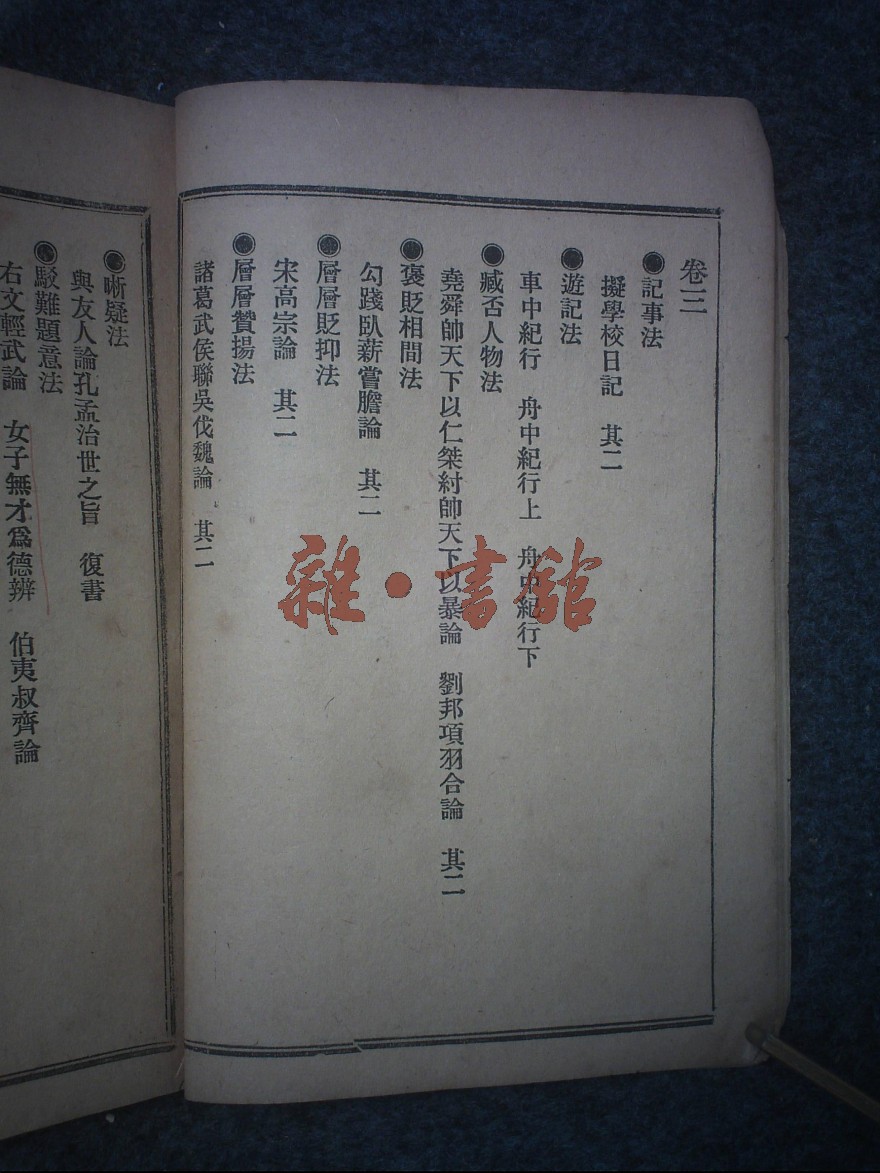 卷三
●記事法
擬學校日記　其二
●遊記法
車中紀行　舟中紀行上　舟中紀行下
●臧否人物法
堯舜帥天下以仁桀紂帥天下以暴論　劉邦項羽合論　其二
●褒貶相間法
勾踐臥薪嘗膽論　其二
●層層貶抑法
宋高宗論　其二
●層層贊揚法
諸葛武侯聯吳伐魏論　其二
●晰疑法
與友人論孔孟治世之旨　復書
●駁難題意法
右文輕武論　女子無才爲德辨　伯夷叔齊論
雜·書館